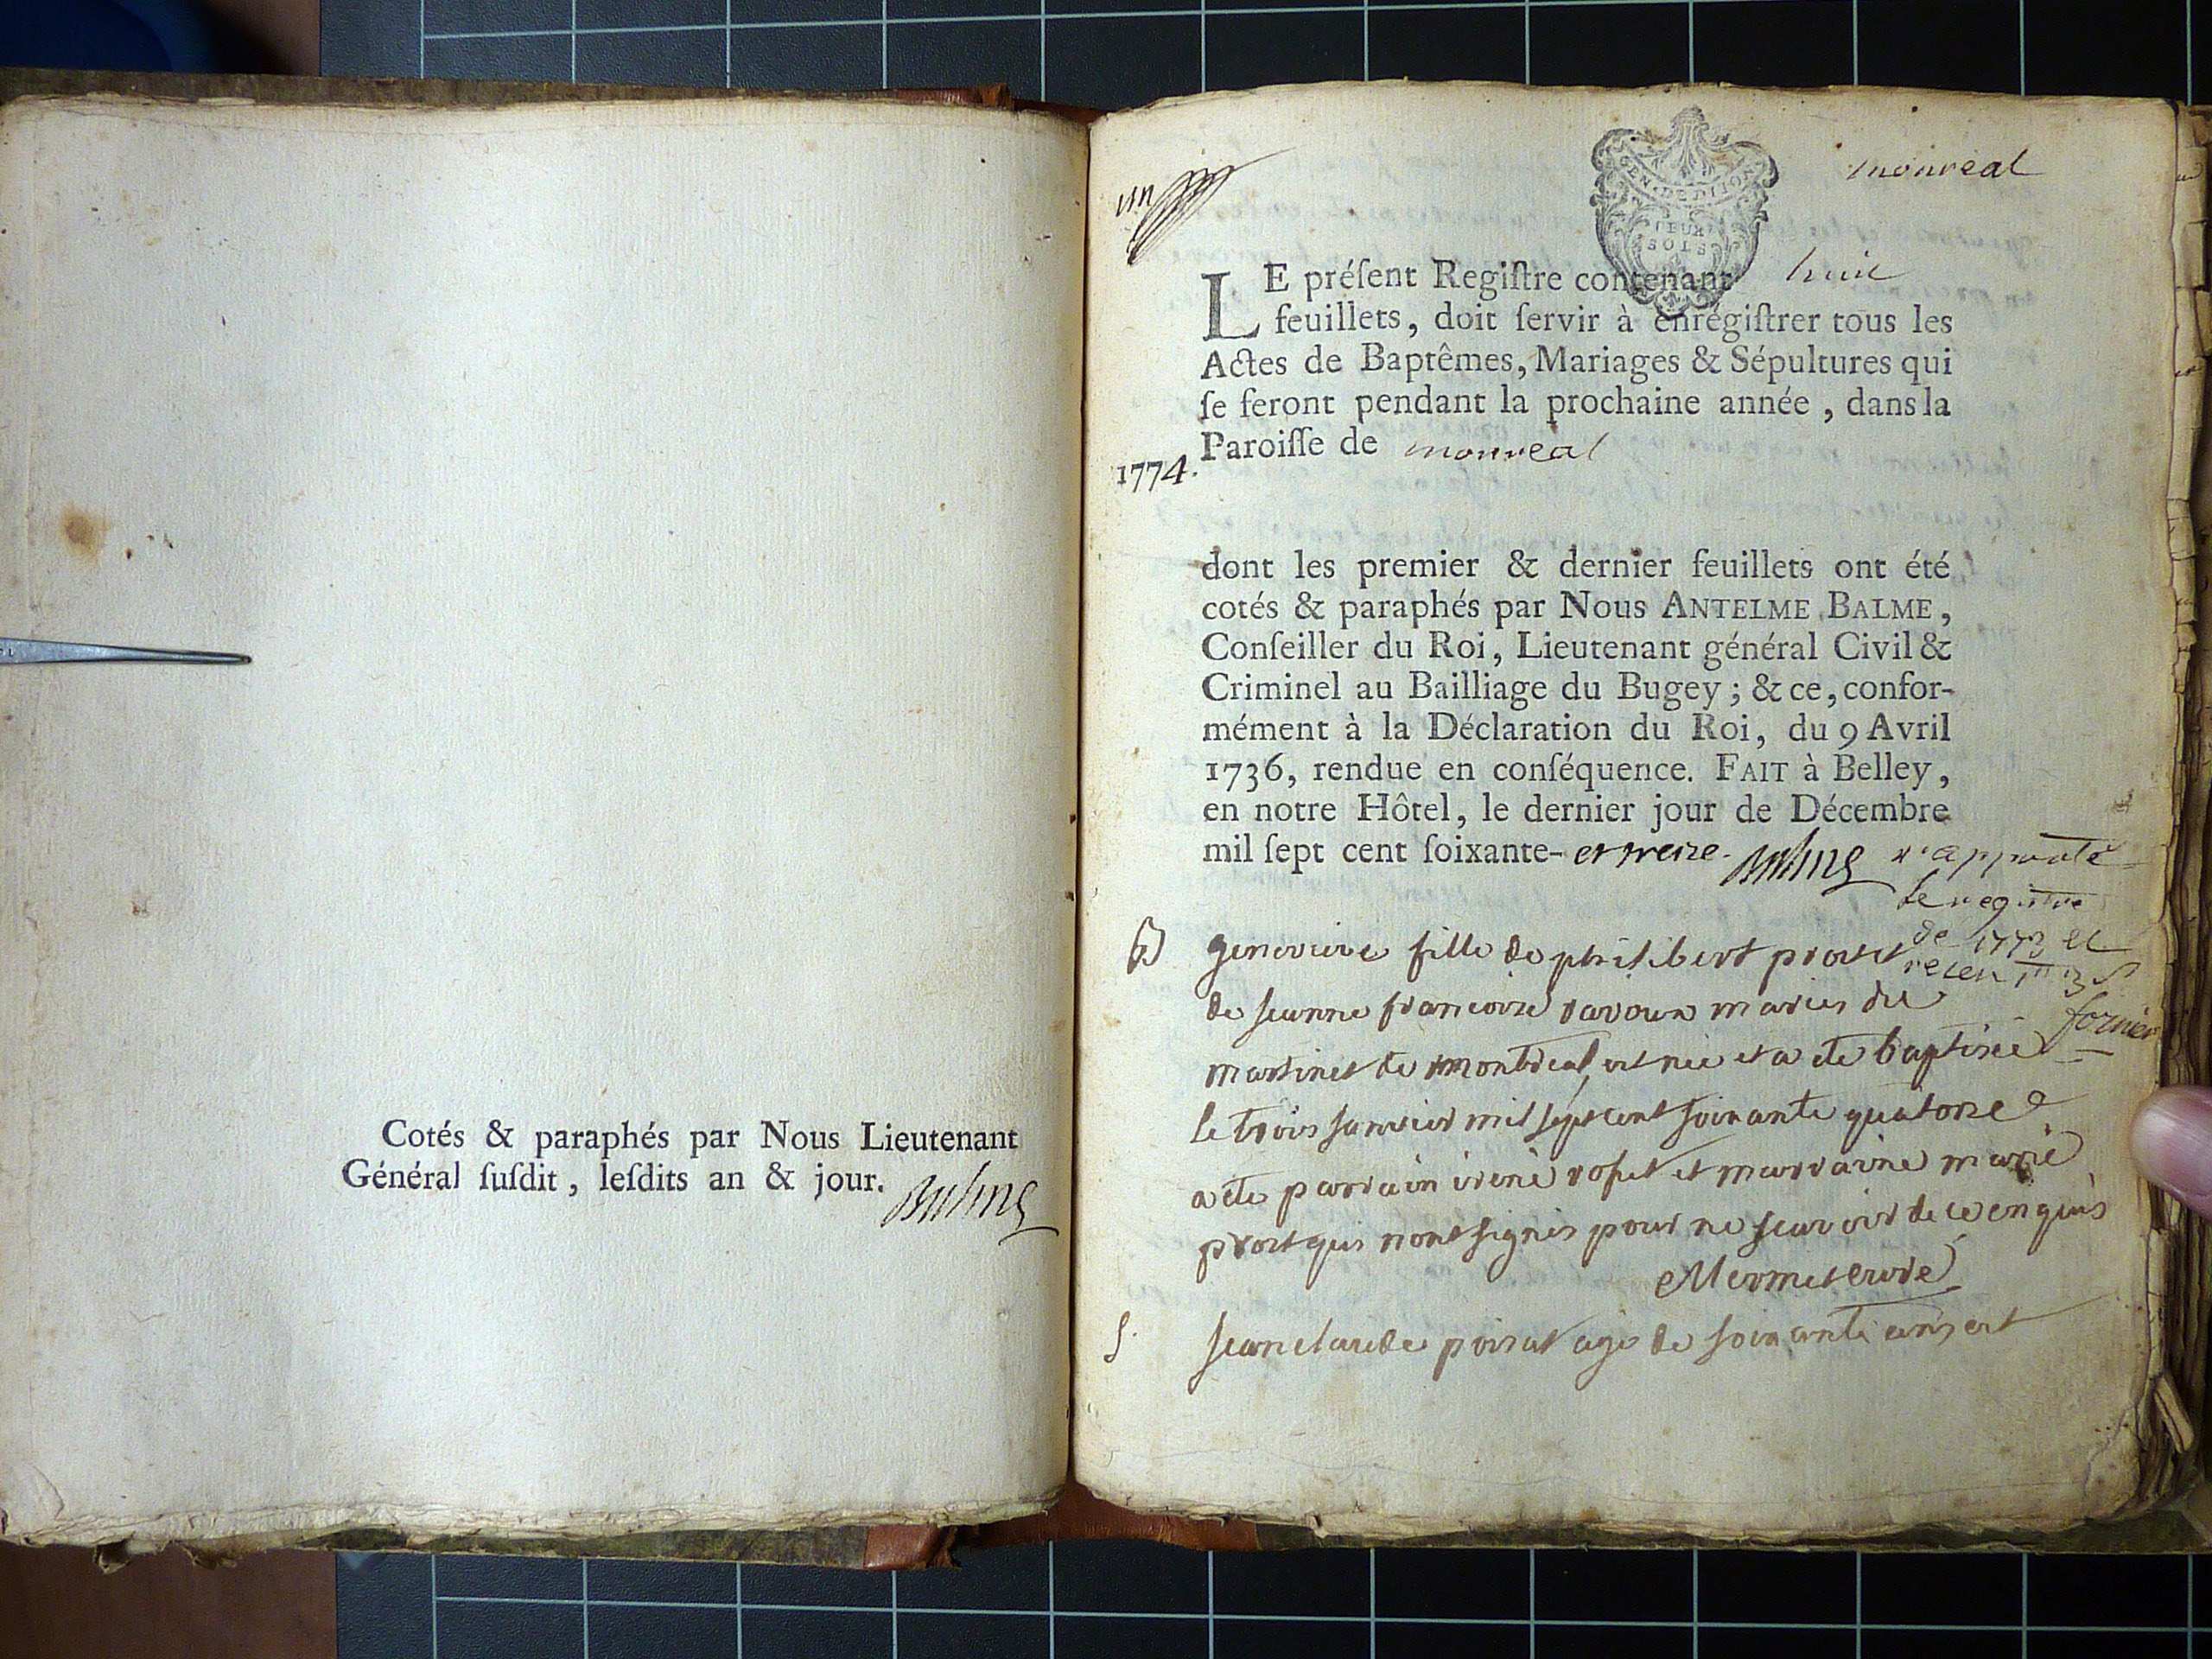 Cotés & paraphés par Nous Lieutenant
Général ſuſdit, leſdits an & jour.
Balme
monreal
GEN. DE DIJON
DEUX
SOLS
LE préſent Regiſtre contenant huit
feuillets, doit ſervir à enrégiſtrer tous les
Actes de Baptêmes, Mariages & Sépultures qui
ſe feront pendant la prochaine année, dans la
Paroiſſe de monreal
1774.
dont les premier & dernier feuillets ont été
cotés & paraphés par Nous ANTELME BALME,
Conſeiller du Roi, Lieutenant général Civil &
Criminel au Bailliage du Bugey; & ce, confor-
mément à la Déclaration du Roi, du 9 Avril
1736, rendue en conſéquence. FAIT à Belley,
en notre Hôtel, le dernier jour de Décembre
mil ſept cent ſoixante- et treize. Balme
apporté
le registre
de 1773 et
fornier
B genevieve fille de philibert prost et
de jeanne francoise ravoux maries dit
martinet de montreal, est née et a ete baptisée
le trois janvier mil sept cent soixante quatorze
a ete parrain irené et marraine marie
prost qui n'ont signés pour ne scavoir de ce enquis
Mermet curé
S. jean claude poisat agé de soixante ans est